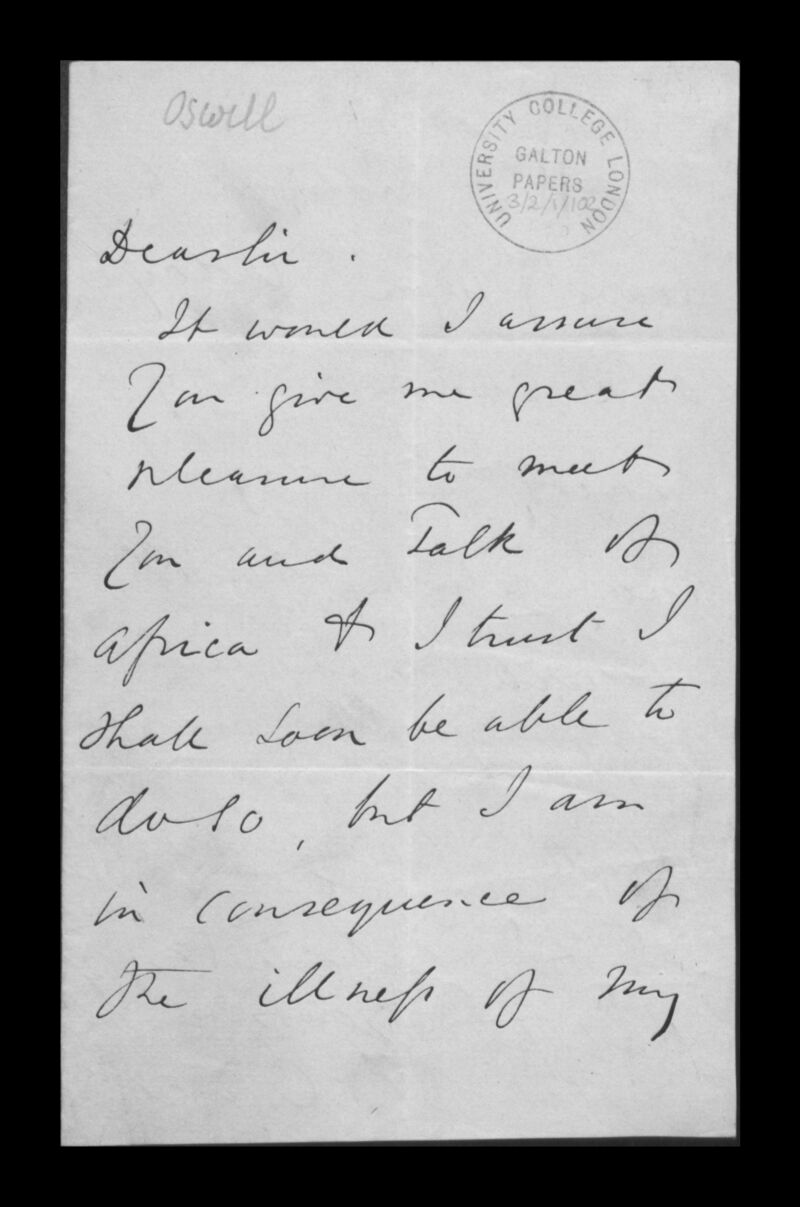 Oswell
UNIVERSITY COLLEGE LONDON
GALTON
PAPERS
3/2/1/102
Dear Sir.
It would I assure
You give me great
pleasure to meet
You and Talk of
Africa & I trust I
shall soon be able to
do so, but I am
in consequence of
the illness of my